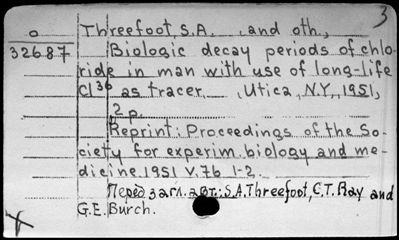 3
O Threefoot, S.A. and oth.,
32687 Biologic decay periods of chlo-
ride in man with use of long-life
Cl36 as tracer. Utica, N.Y., 1951,
2 p.
Reprint: Proceedings of the So-
ciety for experim. biology and me-
dicine. 1951 v. 76 1-2.
Перед загл. авт.: S.A. Threefoot, C.T. Ray and
G.E. Burch.